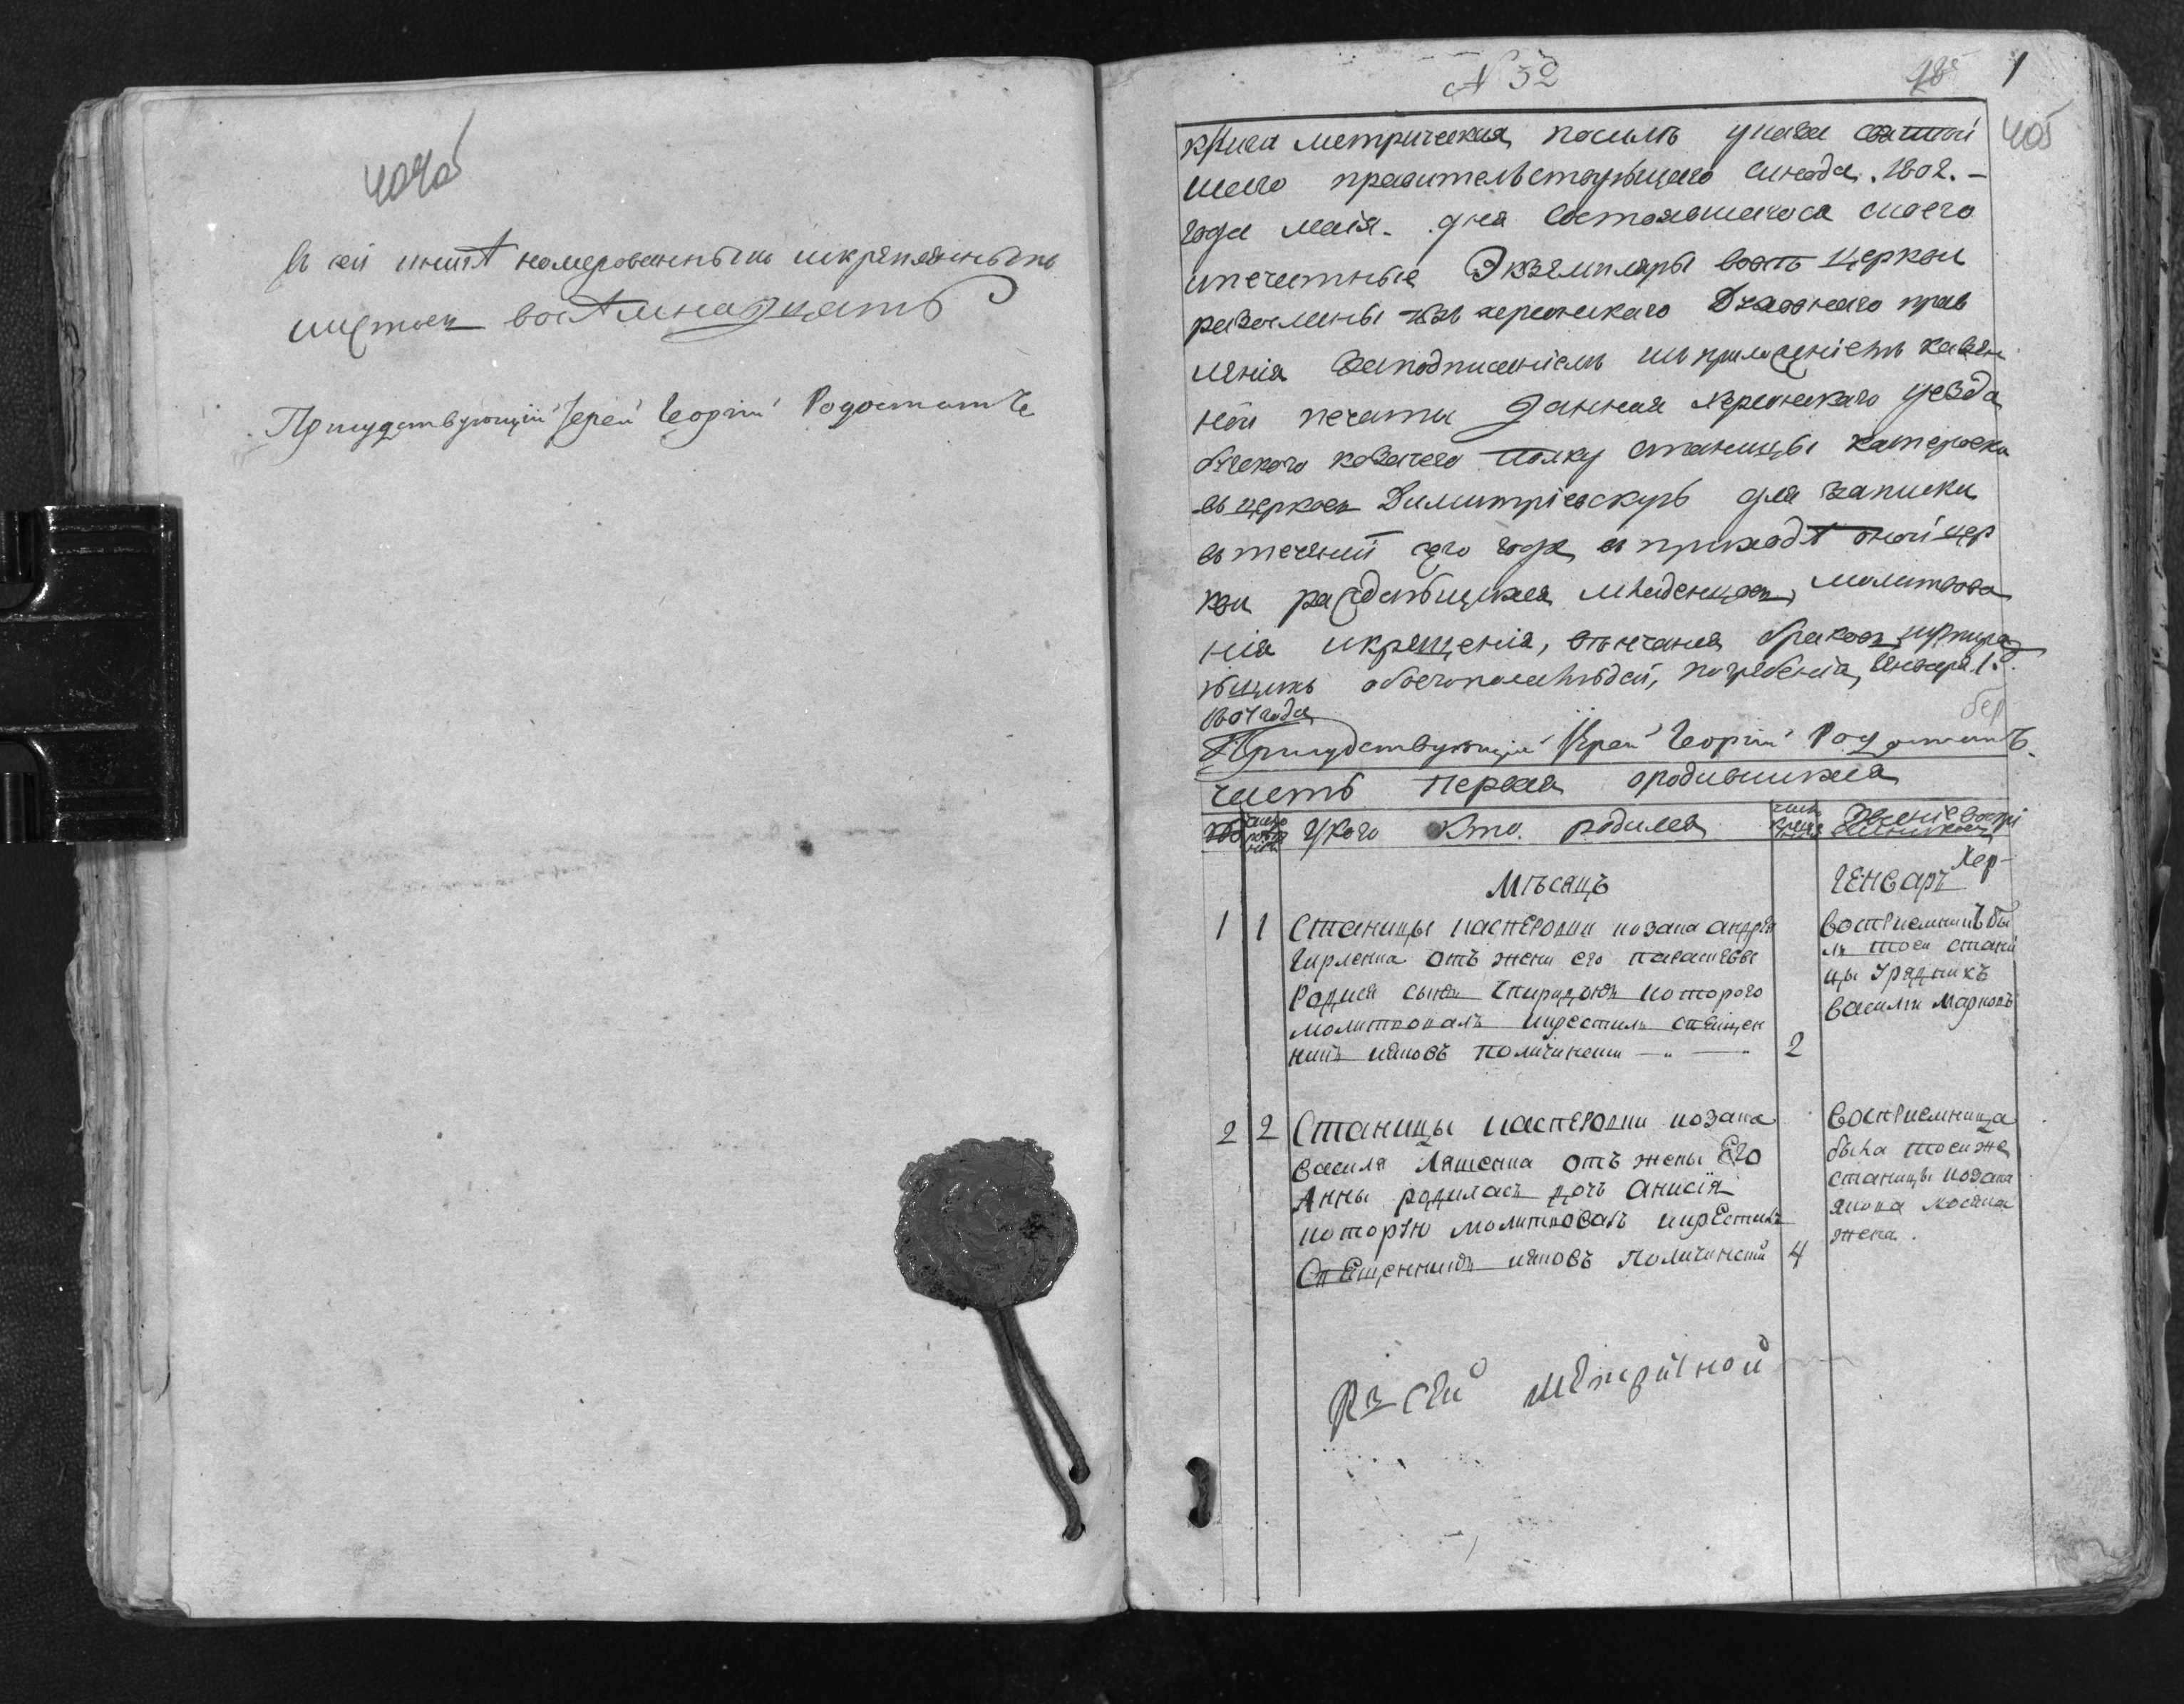 404об
Въ сей книгѣ номерованныхъ искрепленныхъ
листовъ восѣмнадцать
Присудствующій Іерей Георгій Родостатъ
N 32
18
1
405
книга метрическая посилѣ указа святѣй
шаго правительствующаго синода 1802.
года маія дня состоявшагося и посего
печетные Экземпляры вовсѣ церкви
разосланы изъ херсонскаго Духовнаго прав
ленія заподписаніемъ исприложеніемъ казен
ной печати данная херсонскаго уезда
бугского козачего полку станицы касперовки
въ церковь Димитріевскую для записки
втеченіи сего года въ приходѣ оной цер
кви раждающихся младенцевъ, молитвова
нія икрещенія, вѣнчанія браковъ, иумира
ющихъ обоегополалюдей, погребенія, Генваря 1.
1804 года
бер
Присудствующій Іерей Георгій Родостатъ.
часть первая ородившихся
число рожде нія
Укого кто родился
число креще нія
Званіе воспрі емниковъ
Мѣсяцъ
Генваръ
Хер-
1 1 Станицы касперовки козака андрея
Гирленка отъ жены его параскевы
Родися сынъ Спиридонъ которого
молитвовалъ икрестилъ священ
никъ іяковъ Поличинскій 2
воспріемникъ бы
лъ тоей стани
цы Урядникъ
василіи Марковъ
2 2 Станицы касперовки козака
василя Ляшенка отъ жены Его
Анны родиласъ дочъ анисія
которую молитвовалъ икрестилъ
Священникъ іяковъ Поличинскій 4
Воспріемница
была тоейже
станицы козака
якова
жена.
Къ сей метричной